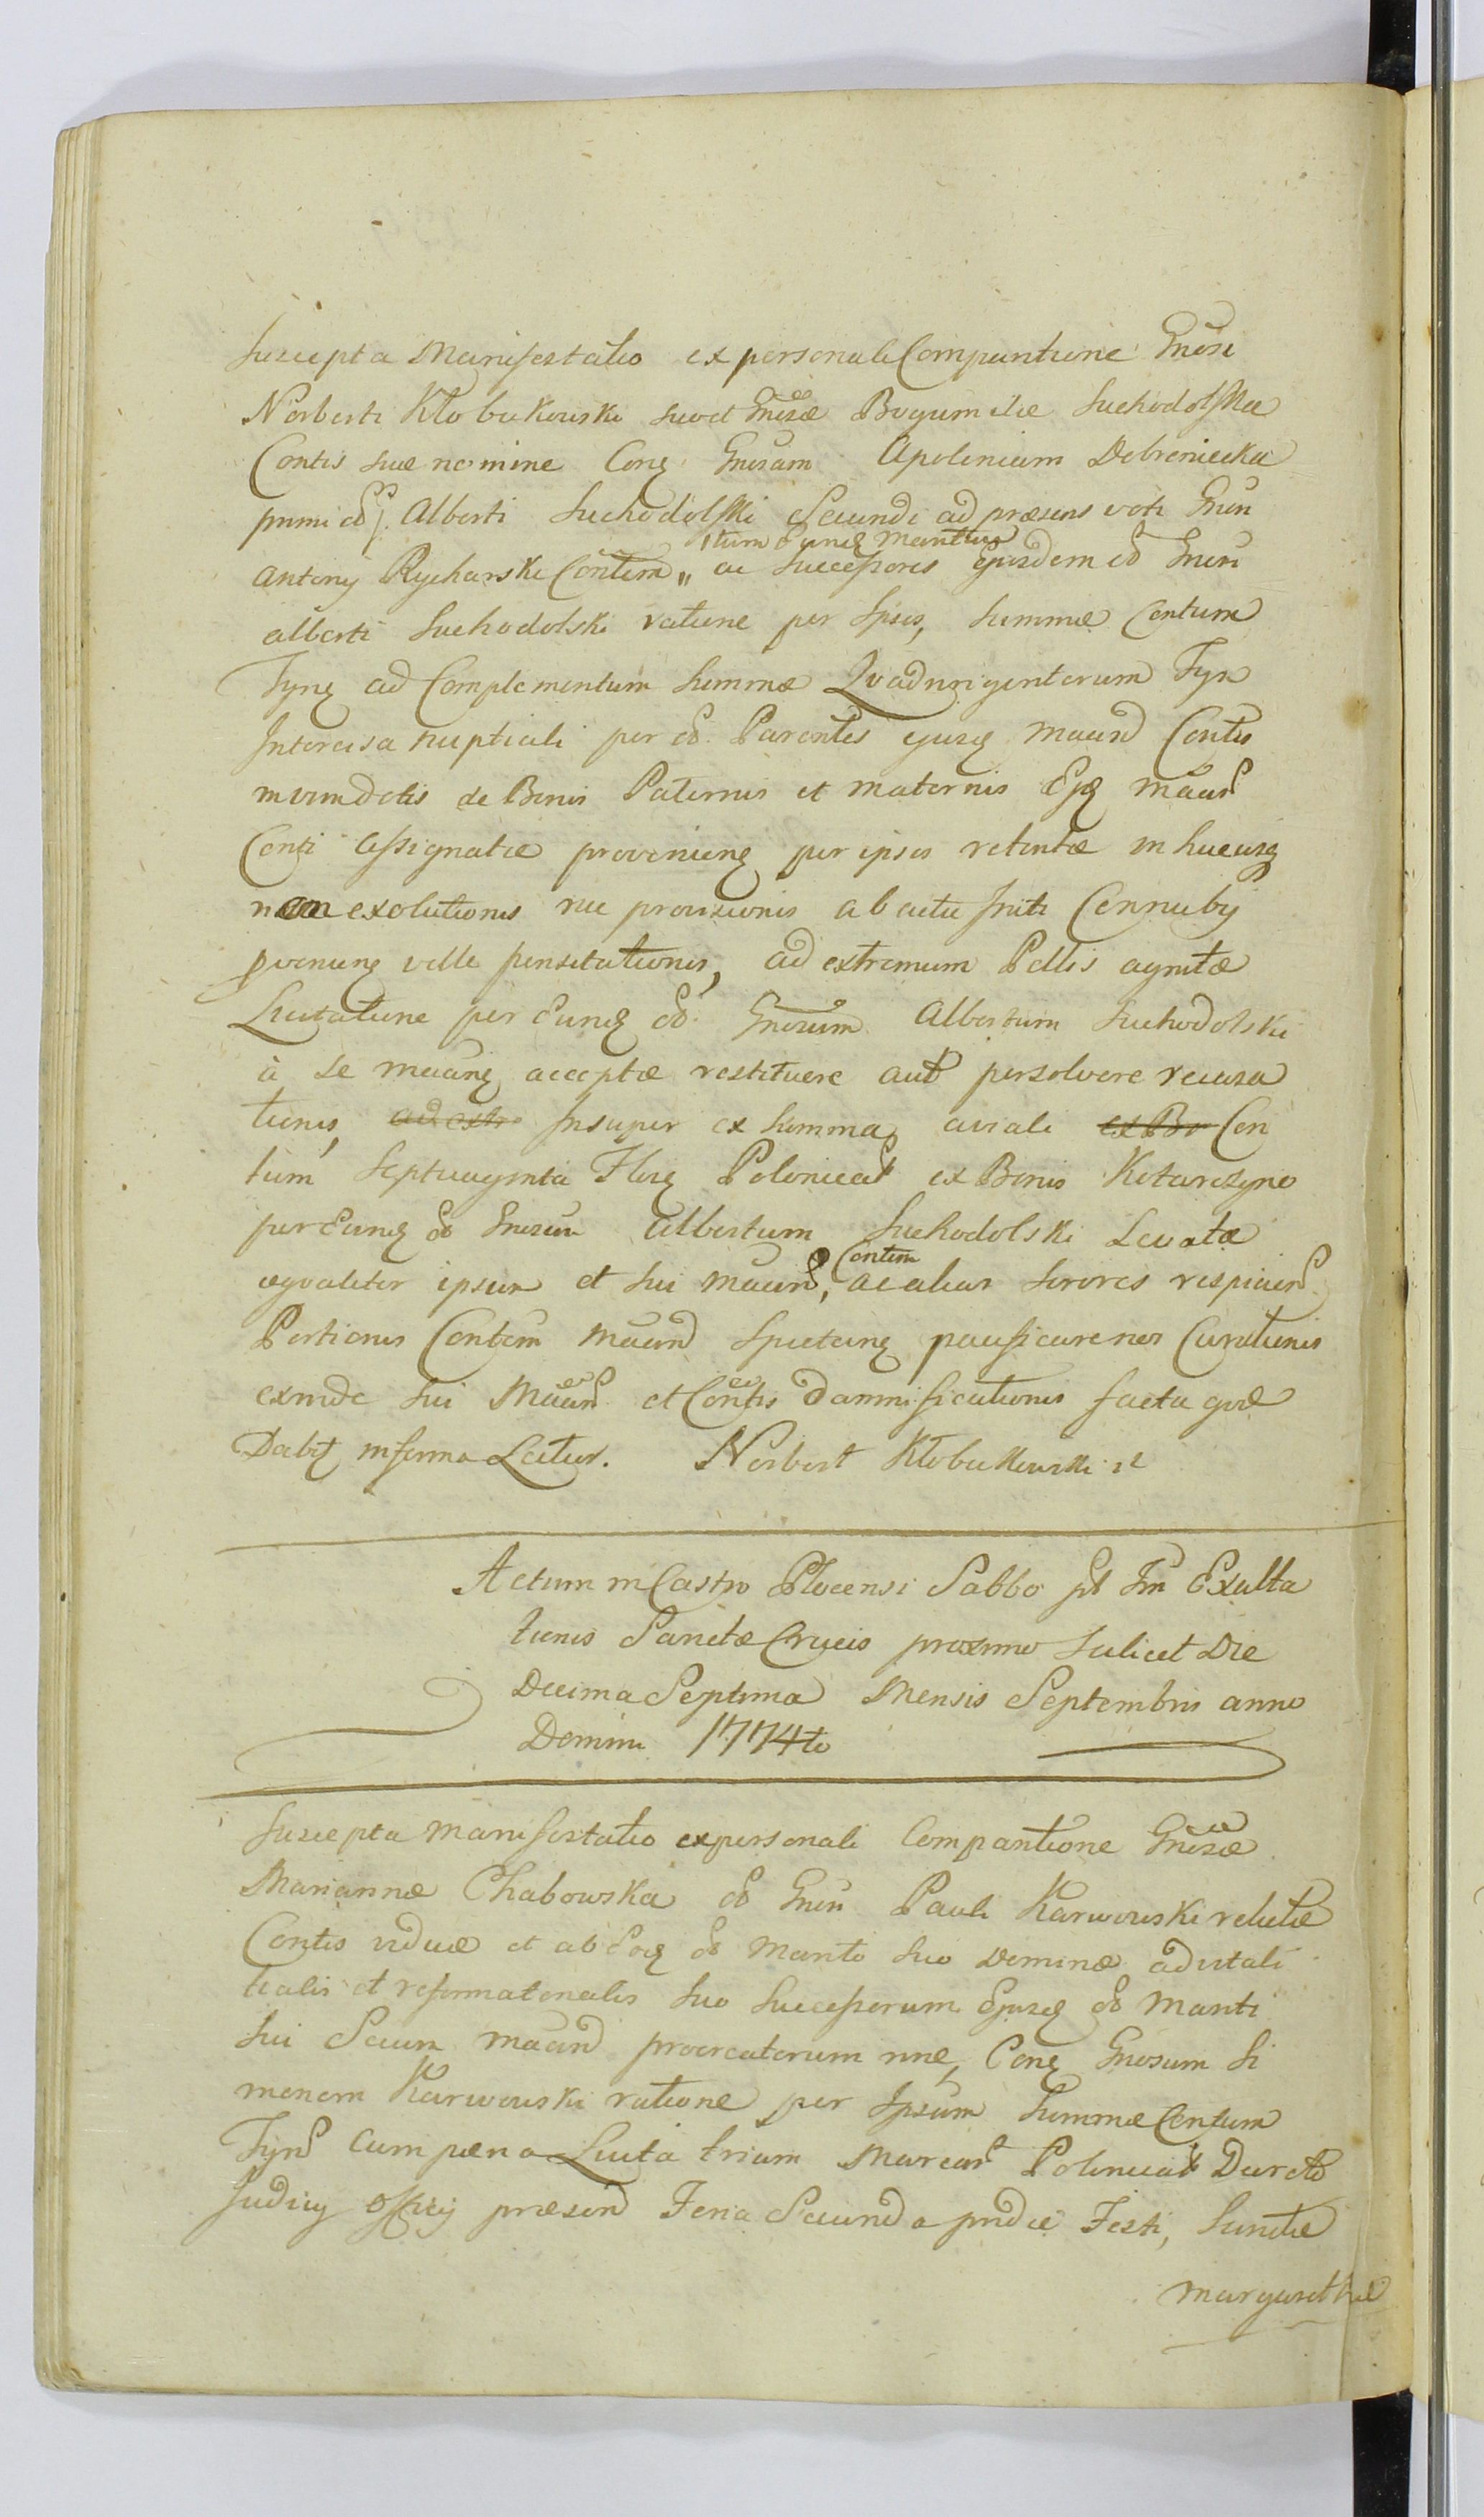 Suscepta Manifestatio ex personali Compantione Gnosi
Norberti Kłobukowski suo et Gnosæ Bogumilæ Suchodolska
Contis suæ nomine Cong Gnosam Apolonium Dobreniecka
primi ŏ Alberti Suchodolski Secundi ad præsens voti Gnsn
itum Eung Maritum
Antony Rycharski Contem „ ac Successores Ejusdem ŏ Gnsn
alberti Suchodolski ratione per Ipsos, Summæ Centum
Tynf ad Complementum Summæ Qvadringentorum Tyn
Intercisa nuptiali per ŏ Parentes ejusq maand Contis
in vim dotis de Bonis Paternis et maternis Ejq maand
Conti assignatæ provenieng per ipsos retentæ in hucusq
non exolutionis nec provisionis ab actu Initi Connuby
pvenieng velle pensitationis, ad extremum Pellis agnitæ
Licitatione per Eung ŏ Gnosum Albertum Suchodolski
à se maang acceptæ restituere aut persolvere recusa
tionis, ad extre Insuper ex Summa aviali ex Bo Cen
tum Septuaginta Flog Polonical ex Bonis Kotarczyno
per Eung ŏ Gnosum Albertum Suchodolski Levatæ
Contem
æqvaliter ipsum et sui Maand, ac alias Sorores respicien
Portionis Contem Maand Spectang pacificare non Curationis
exinde sui Maand et Contis damnificationis facta qvæ
Dabit in forma Latior. Norbert Kłobukowski
Actum in Castro Plocensi Sabbo pt Fm Exalta
tionis Sanctæ Crucis proximo Scilicet Die
Decima Septima Mensis Septembris anno
Domini 1774to
Suscepta Manifestatio ex personali Compantione Gnosæ
Mariannæ Chabowska ŏ Gnsn Pauli Karwowski relictæ
Contis viduæ et ab Eoq ŏ Marito suo Dominæ advitali
tialis et reformatorialis suo Successorum Ejusq ŏ Mariti
sui Secum maand procreatorum nne, Cong Gnosum Si
monem Karwowski ratione per Ipsum Summæ Centum
Tynf cum pæna Lucta trium Marcar Polonical Decreto
Judicy officy præsend Feria Secunda pridie Festi, Sanctæ
Margarethæ